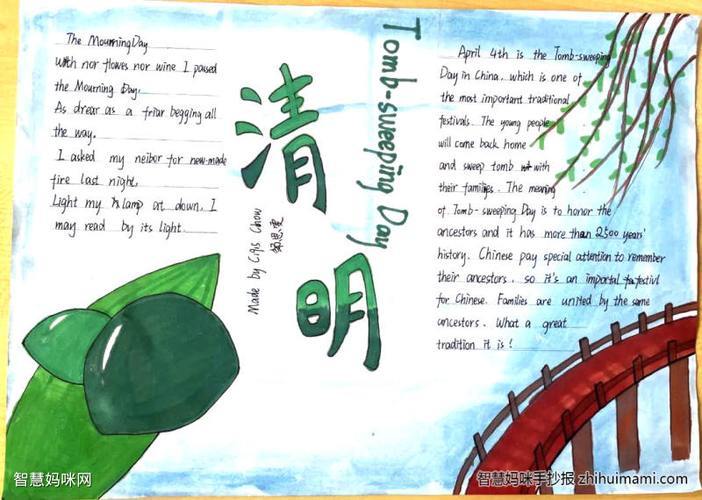 The Mourning Day
With nor flowes nor wine I passed
the Mourning Day,
As drear as a friar begging all
the way.
I asked my neibor for new-made
fire last night,
Light my lamp at down, I
may read by its light.
清明
Tomb-sweeping Day
Made by Cigis Chow
April 4th is the Tomb-sweeping
Day in China, which is one of
the most important traditional
festivals. The young people
will come back home
and sweep tomb with
their families. The meaning
of Tomb-sweeping Day is to honor the
ancestors and it has more than 2500 years'
history. Chinese pay special attention to remember
their ancestors. so it's an importal festivl
for Chinese. Families are united by the same
ancestors. What a great
tradition it is!
智慧妈咪网
智慧妈咪手抄报 zhihuimami.com